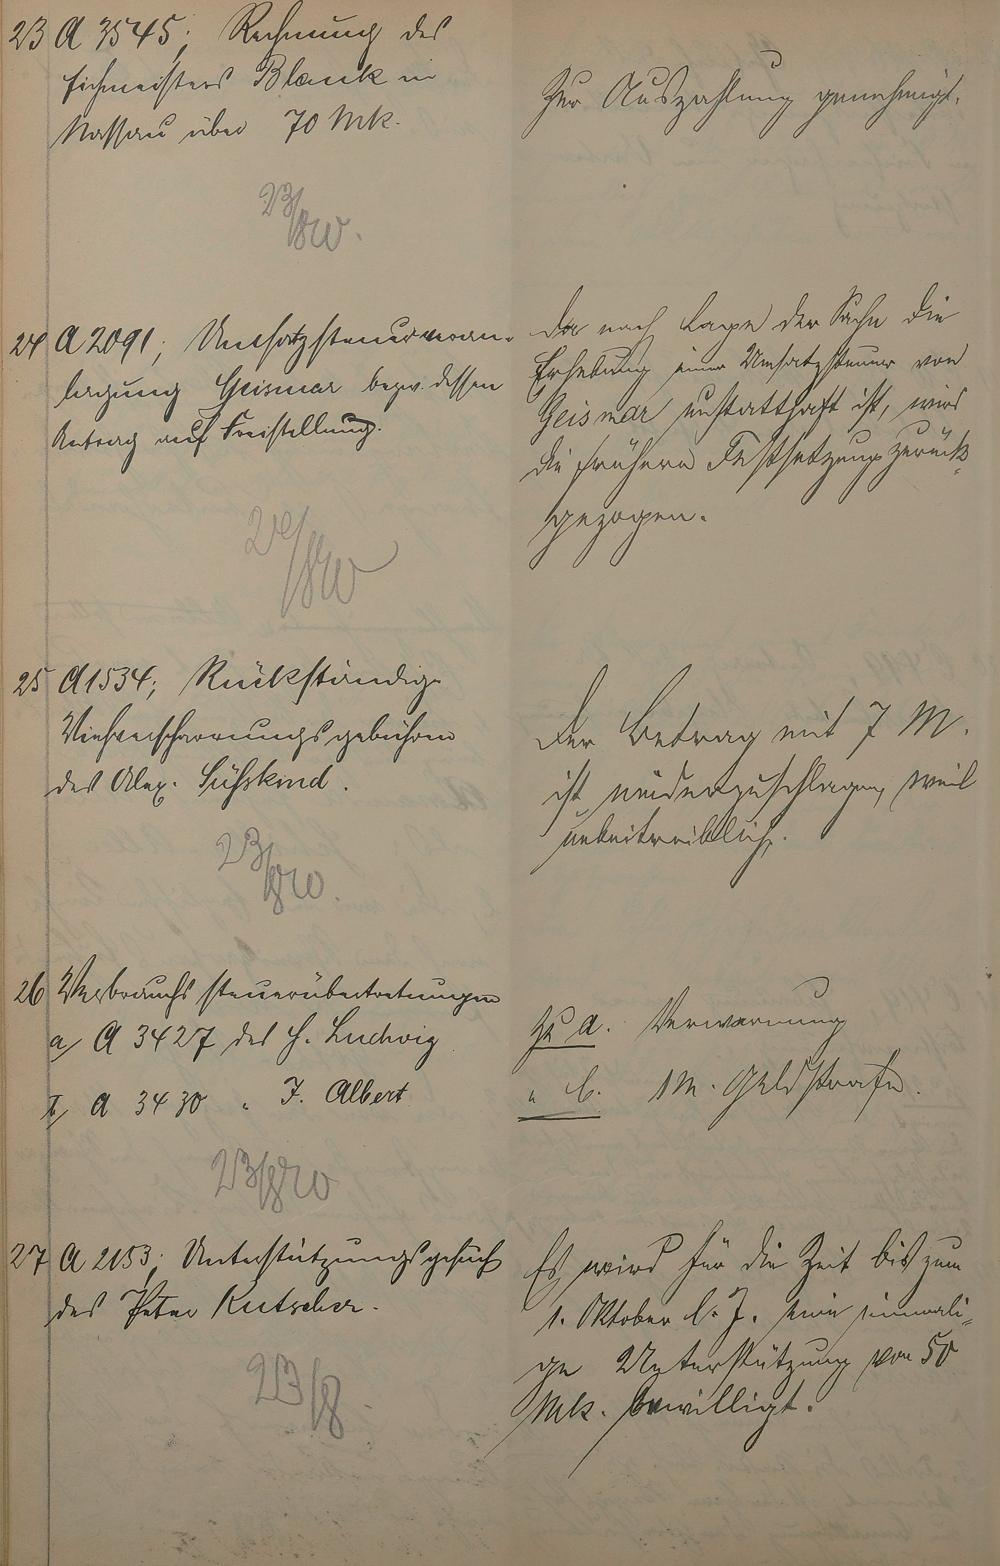 23 A 3545; Rechnung des
Eichmeisters Blank in
Nassau über 70 Mk.
23/8 20.
Zur Auszahlung genehmigt.
24 A 2091; Umsatzsteuerveran-
lagung Geismar bezw. dessen
Antrag auf Freistellung.
24/8 20
Da nach Lage der Sache die
Erhebung einer Umsatzsteuer von
Geismar unstatthaft ist, wird
die frühere Festsetzung zurück-
gezogen.
25 A 1534; Rückständige
Viehverscharrungsgebühren
des Alex. Süßkind.
23/8 20.
Der Betrag mit 7 M.
ist niederzuschlagen, weil
unbeitreiblich.
26 Verbrauchssteuerübertretungen
a/ A 3427 des H. Ludwig
b/ A 3430 " J. Albert
23/8 20
Zu a. Verwarnung
" b. 1 M. Geldstrafe.
27 A 2153; Unterstützungsgesuch
des Peter Kutscher.
23/8.
Es wird für die Zeit bis zum
1. Oktober l. J. eine einmali-
ge Unterstützung von 50
Mk. bewilligt.